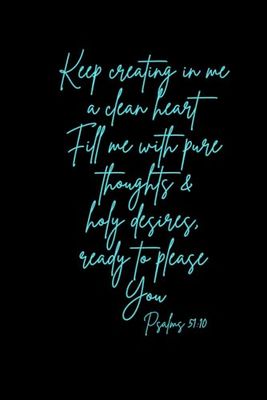 Keep creating in me
a clean heart
Fill me with pure
thoughts &
holy desires,
ready to please
You
Psalms 51:10